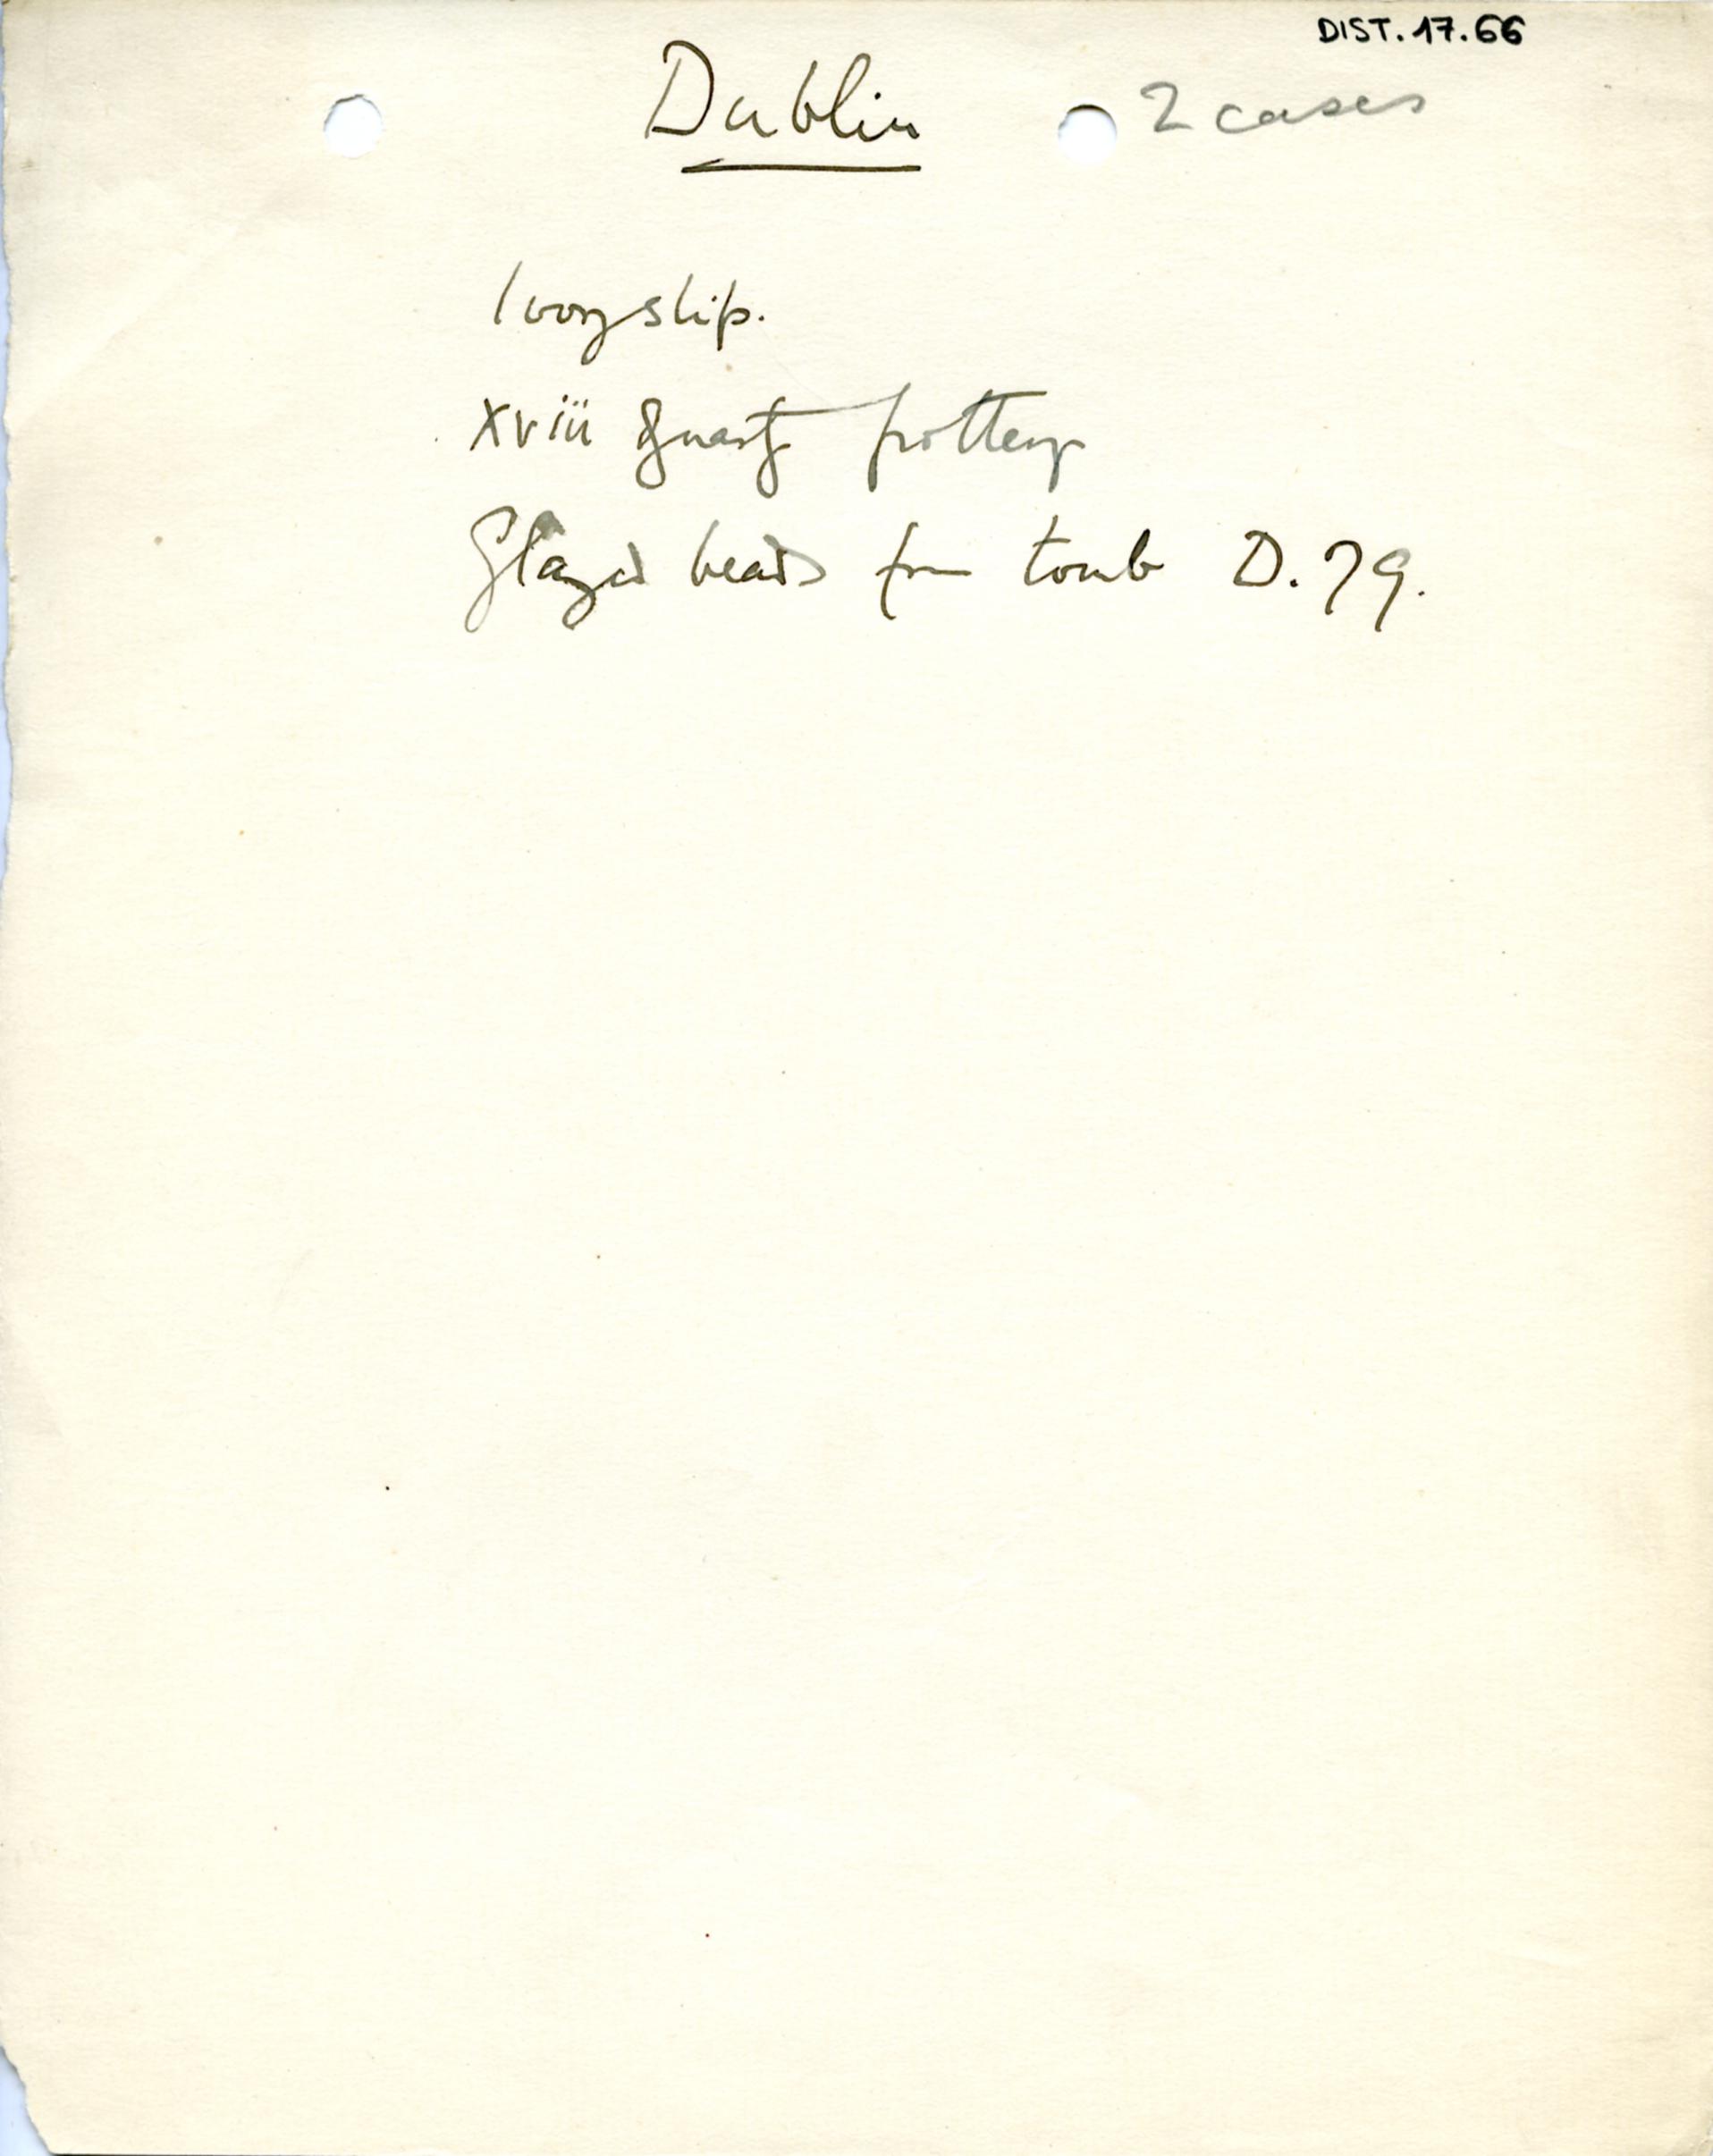 DIST. 17. 66
Dublin
2 cases
Ivory slip.
XViii dynasty pottery
Glazed beads from tomb D. 79.